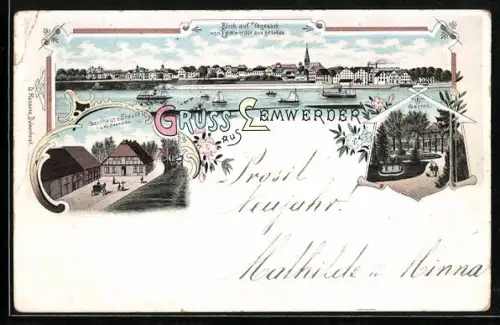 Blick auf Vegesack
von Lemwerder aus gesehen
GRUSS AUS LEMWERDER
Garten
Prosit
Neujahr.
Mathilde u Minna